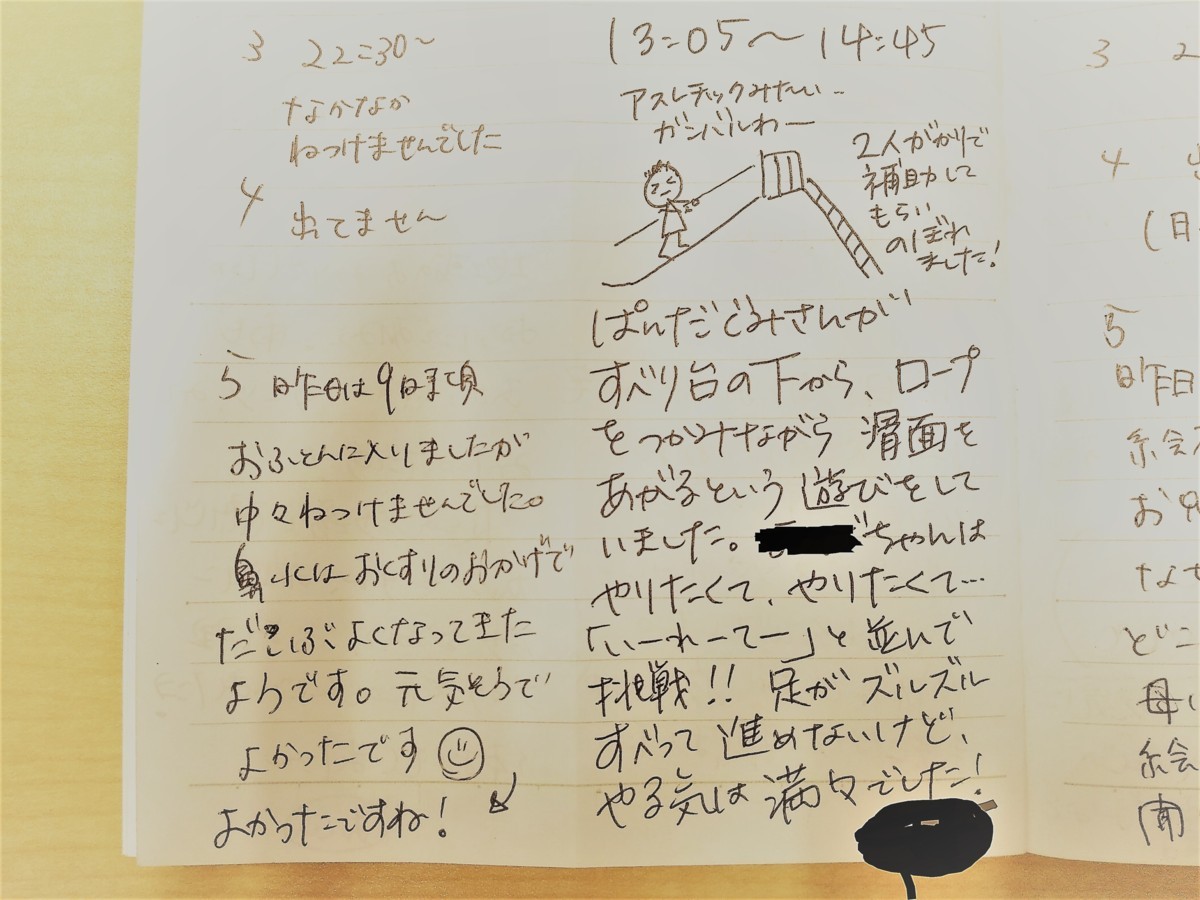 3 22:30〜
なかなか
ねつけませんでした
4
出てません
5 昨日は9時まで頃
おふとんに入りましたが
中々ねつけませんでした。
鼻水はおくすりのおかげで
だいぶよくなってきた
ようです。元気そうで
よかったです
よかったですね!
13:05〜14:45
アスレチックみたい..
ガンバルわー
2人がかりで
補助して
もらい
のぼれ
ました!
ぱんだぐみさんが
すべり台の下から、ロープ
をつかみながら滑面を
あがるという遊びをして
いました。
ちゃんは
やりたくて、やりたくて…
「いーれーてー」と並んで
挑戦!!足がズルズル
すべって進めないけど、
やる気は満々でした!
3 2
4
(日
5
昨日
絵
お
なぜ
どこ
母
絵